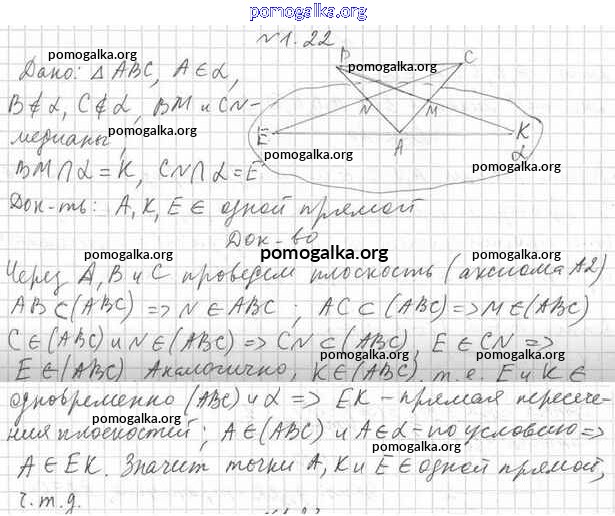 pomogalka.org
№1.22
Дано: △ABC, A∈α,
B∉α, C∉α, BM и CN-
медианы,
BM∩α=K, CN∩α=E
Док-ть: A, K, E ∈ одной прямой
B
C
N
M
E
A
K
α
Док-во
Через A, B и C проведем плоскость (аксиома A2)
AB⊂(ABC) => N∈ABC ; AC⊂(ABC)=>M∈(ABC)
C∈(ABC) и N∈(ABC) => CN⊂(ABC), E∈CN =>
E∈(ABC). Аналогично, K∈(ABC), т.е. E и K∈
одновременно (ABC) и α => EK - прямая пересече-
ния плоскостей; A∈(ABC) и A∈α - по условию =>
A∈EK. Значит точки A, K и E∈одной прямой,
ч.т.д.
pomogalka.org
pomogalka.org
pomogalka.org
pomogalka.org
pomogalka.org
pomogalka.org
pomogalka.org
pomogalka.org
pomogalka.org
pomogalka.org
pomogalka.org
pomogalka.org
pomogalka.org
pomogalka.org